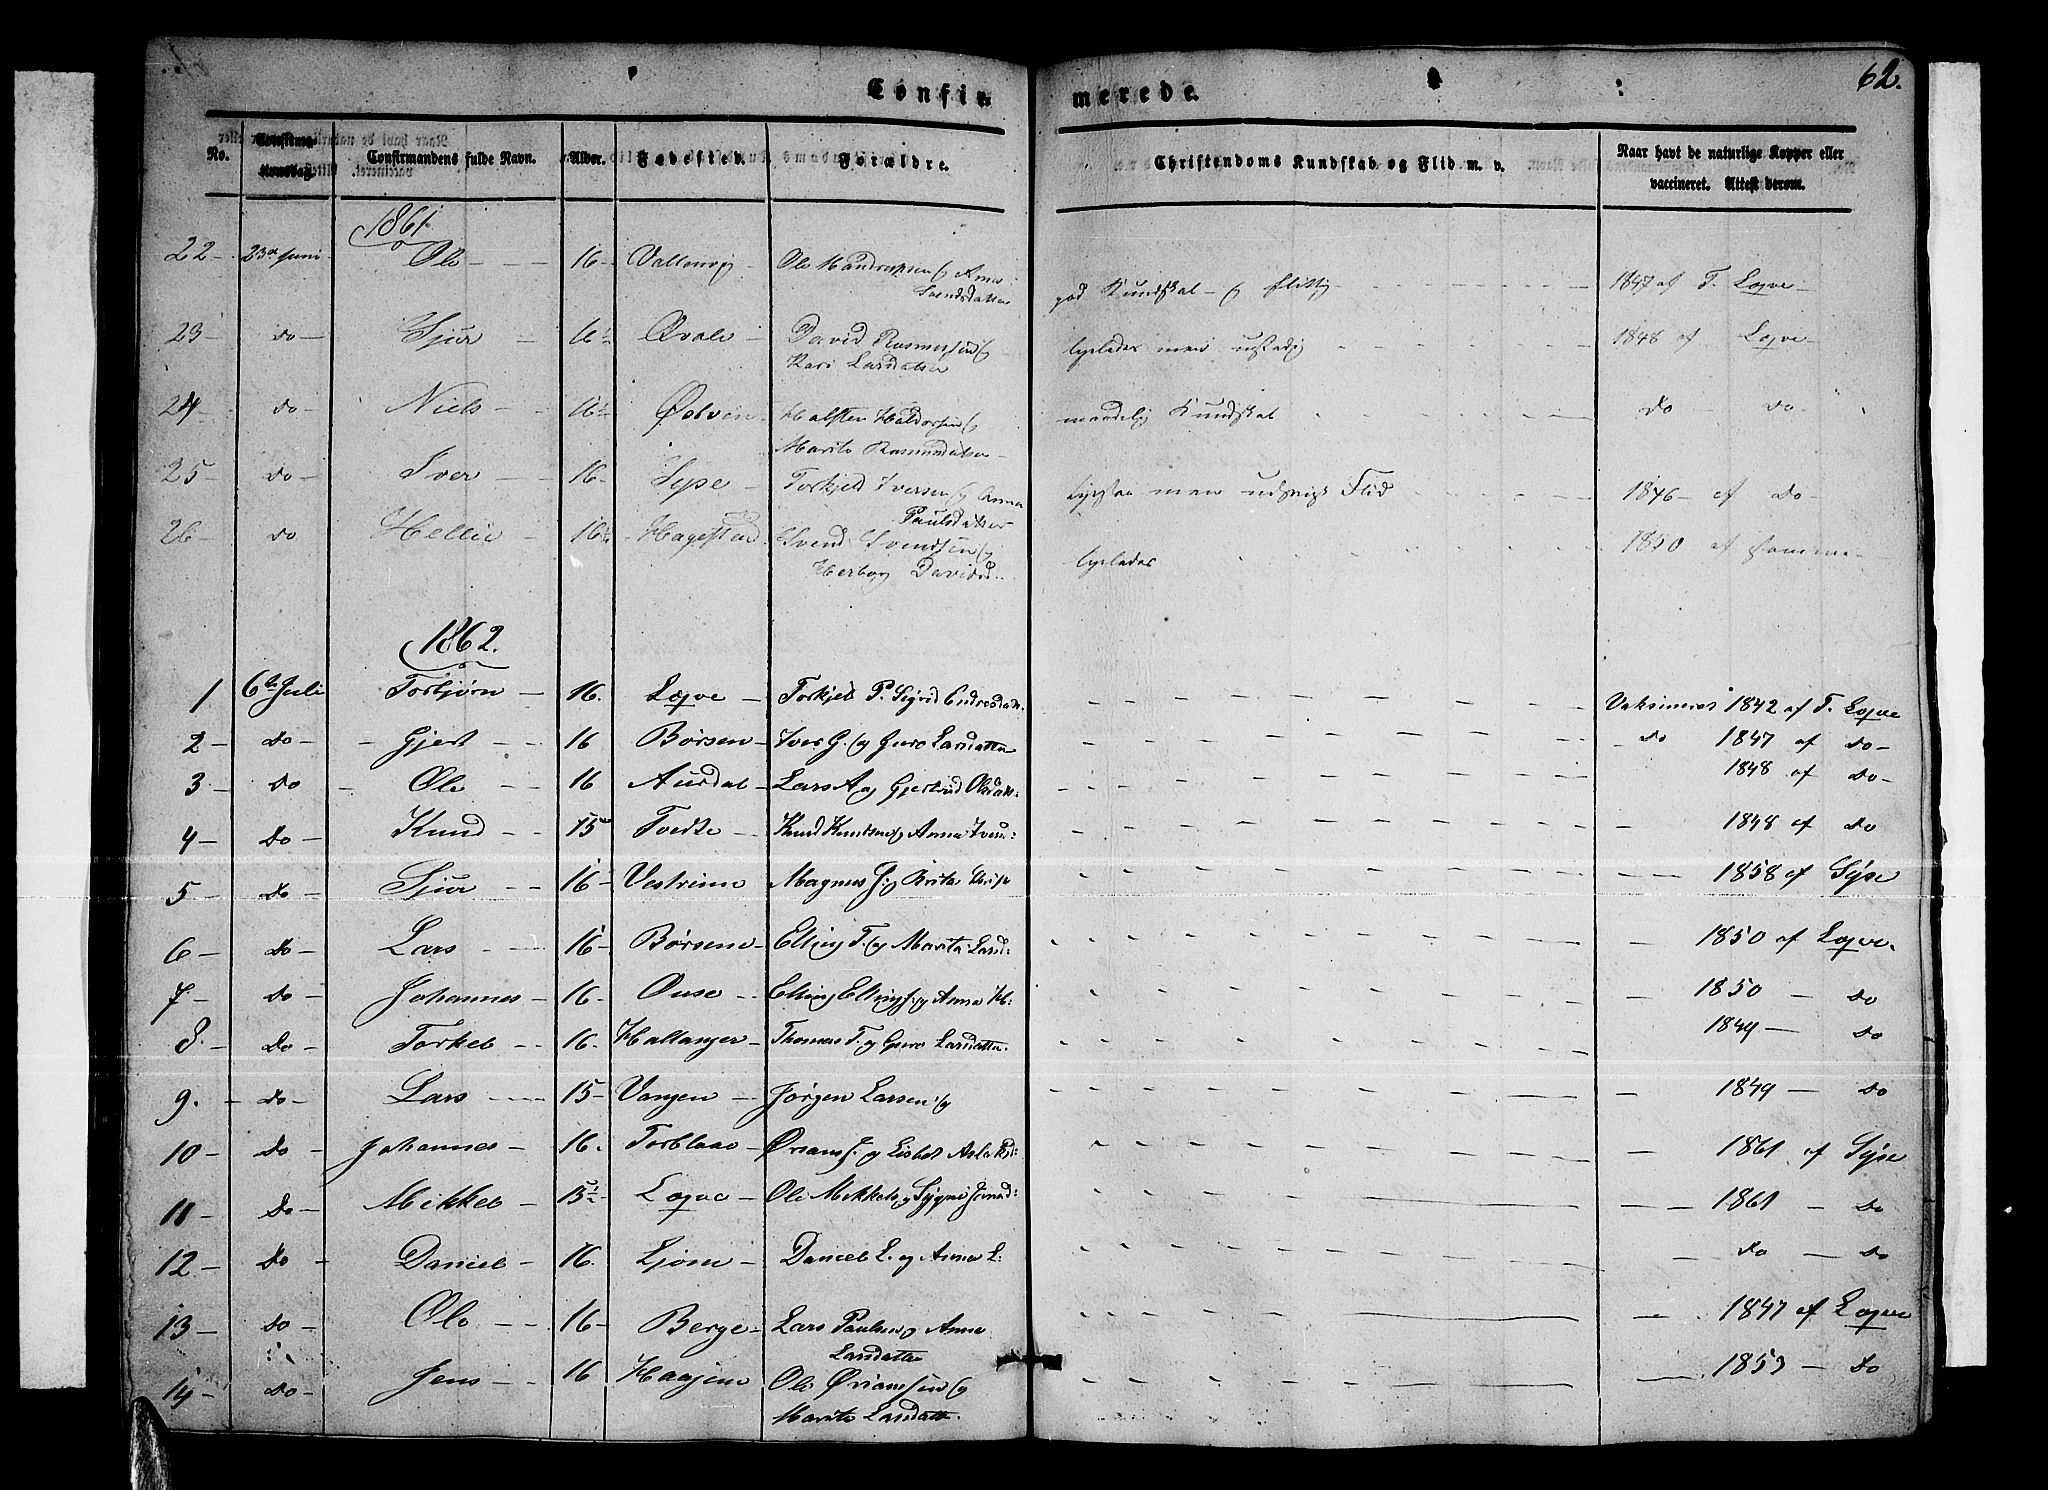 62.
Confir- merede.
No. Confirma- tionsdag. Confirmandens fulde Navn. Alder. Fødested. Forældre. Christendoms Kundskab og Flid m. v. Naar havt de naturlige Kopper eller vaccineret. Attest derom.
1861.
22 23de Juni Ole 16 Ole Anna Svendsdatter god Kundskab flittig 1847 af T. Loqve
23 Do Sjur 16½ Qvale David Rasmussen Kari Larsdatter ligeledes men ustadig 1848 af Loqve
24 Do Niels 16½ Østven Halsten Haldorsen Marite Kundskab Do Do
25 Do Iver 16 Syse Torkjeld Iversen og Anna Paulsdatter men Flid 1846 af Do
26 Do Hellie 16½ Hagesten Svend Svendsen og Herborg Davidsd. ligeledes 1850 af samme
1862.
1 6te Juli Torbjørn 16. Loqve Torkjel P. Sigrid Endresdatt. Vaksineret 1842 af T. Loqve
2 Do Gjert 16 Børsem Iver G. og Guro Larsdatter Do 1847 af Do
3 Do Ole 16 Aurdal Lars A og Gjertrud Olsdatt: 1848 af Do
4 Do Knud 15 Tvedte Knud Knudsen og Anna Ivers: 1848 af Do
5 Do Sjur 16 Vestrime Magnus J. og Brita 1858 af Syse
6 Do Lars 16 Børsem Elling T. og Marita Larsd: 1850 af Loqve.
7 Do Johannes 16. Ouse Elling Ellings. og Anna H: 1850 Do
8. Do Torkel 16. Haltanger Thomas T. og Guro Larsdatter. 1849 Do
9. Do Lars 15 Vangen Jørgen Larsen og 1849 Do
10 Do Johannes 16. Torblaae Ørians J. og Lisbet Aslaksd: 1861 af Syse
11 Do Mikkel 15½ Loqve Ole Mikkels. og Sygni 1861 Do
12 Do Daniel 16. Ljone Daniel L. og Anna L: Do Do
13 Do Ole 16 Berge Lars Paulsen og Anna Larsdatter 1847 af Loqve
14 Do Jens 16 Haajem Ole Ørianssen og Marite Larsdatt. 1853 Do